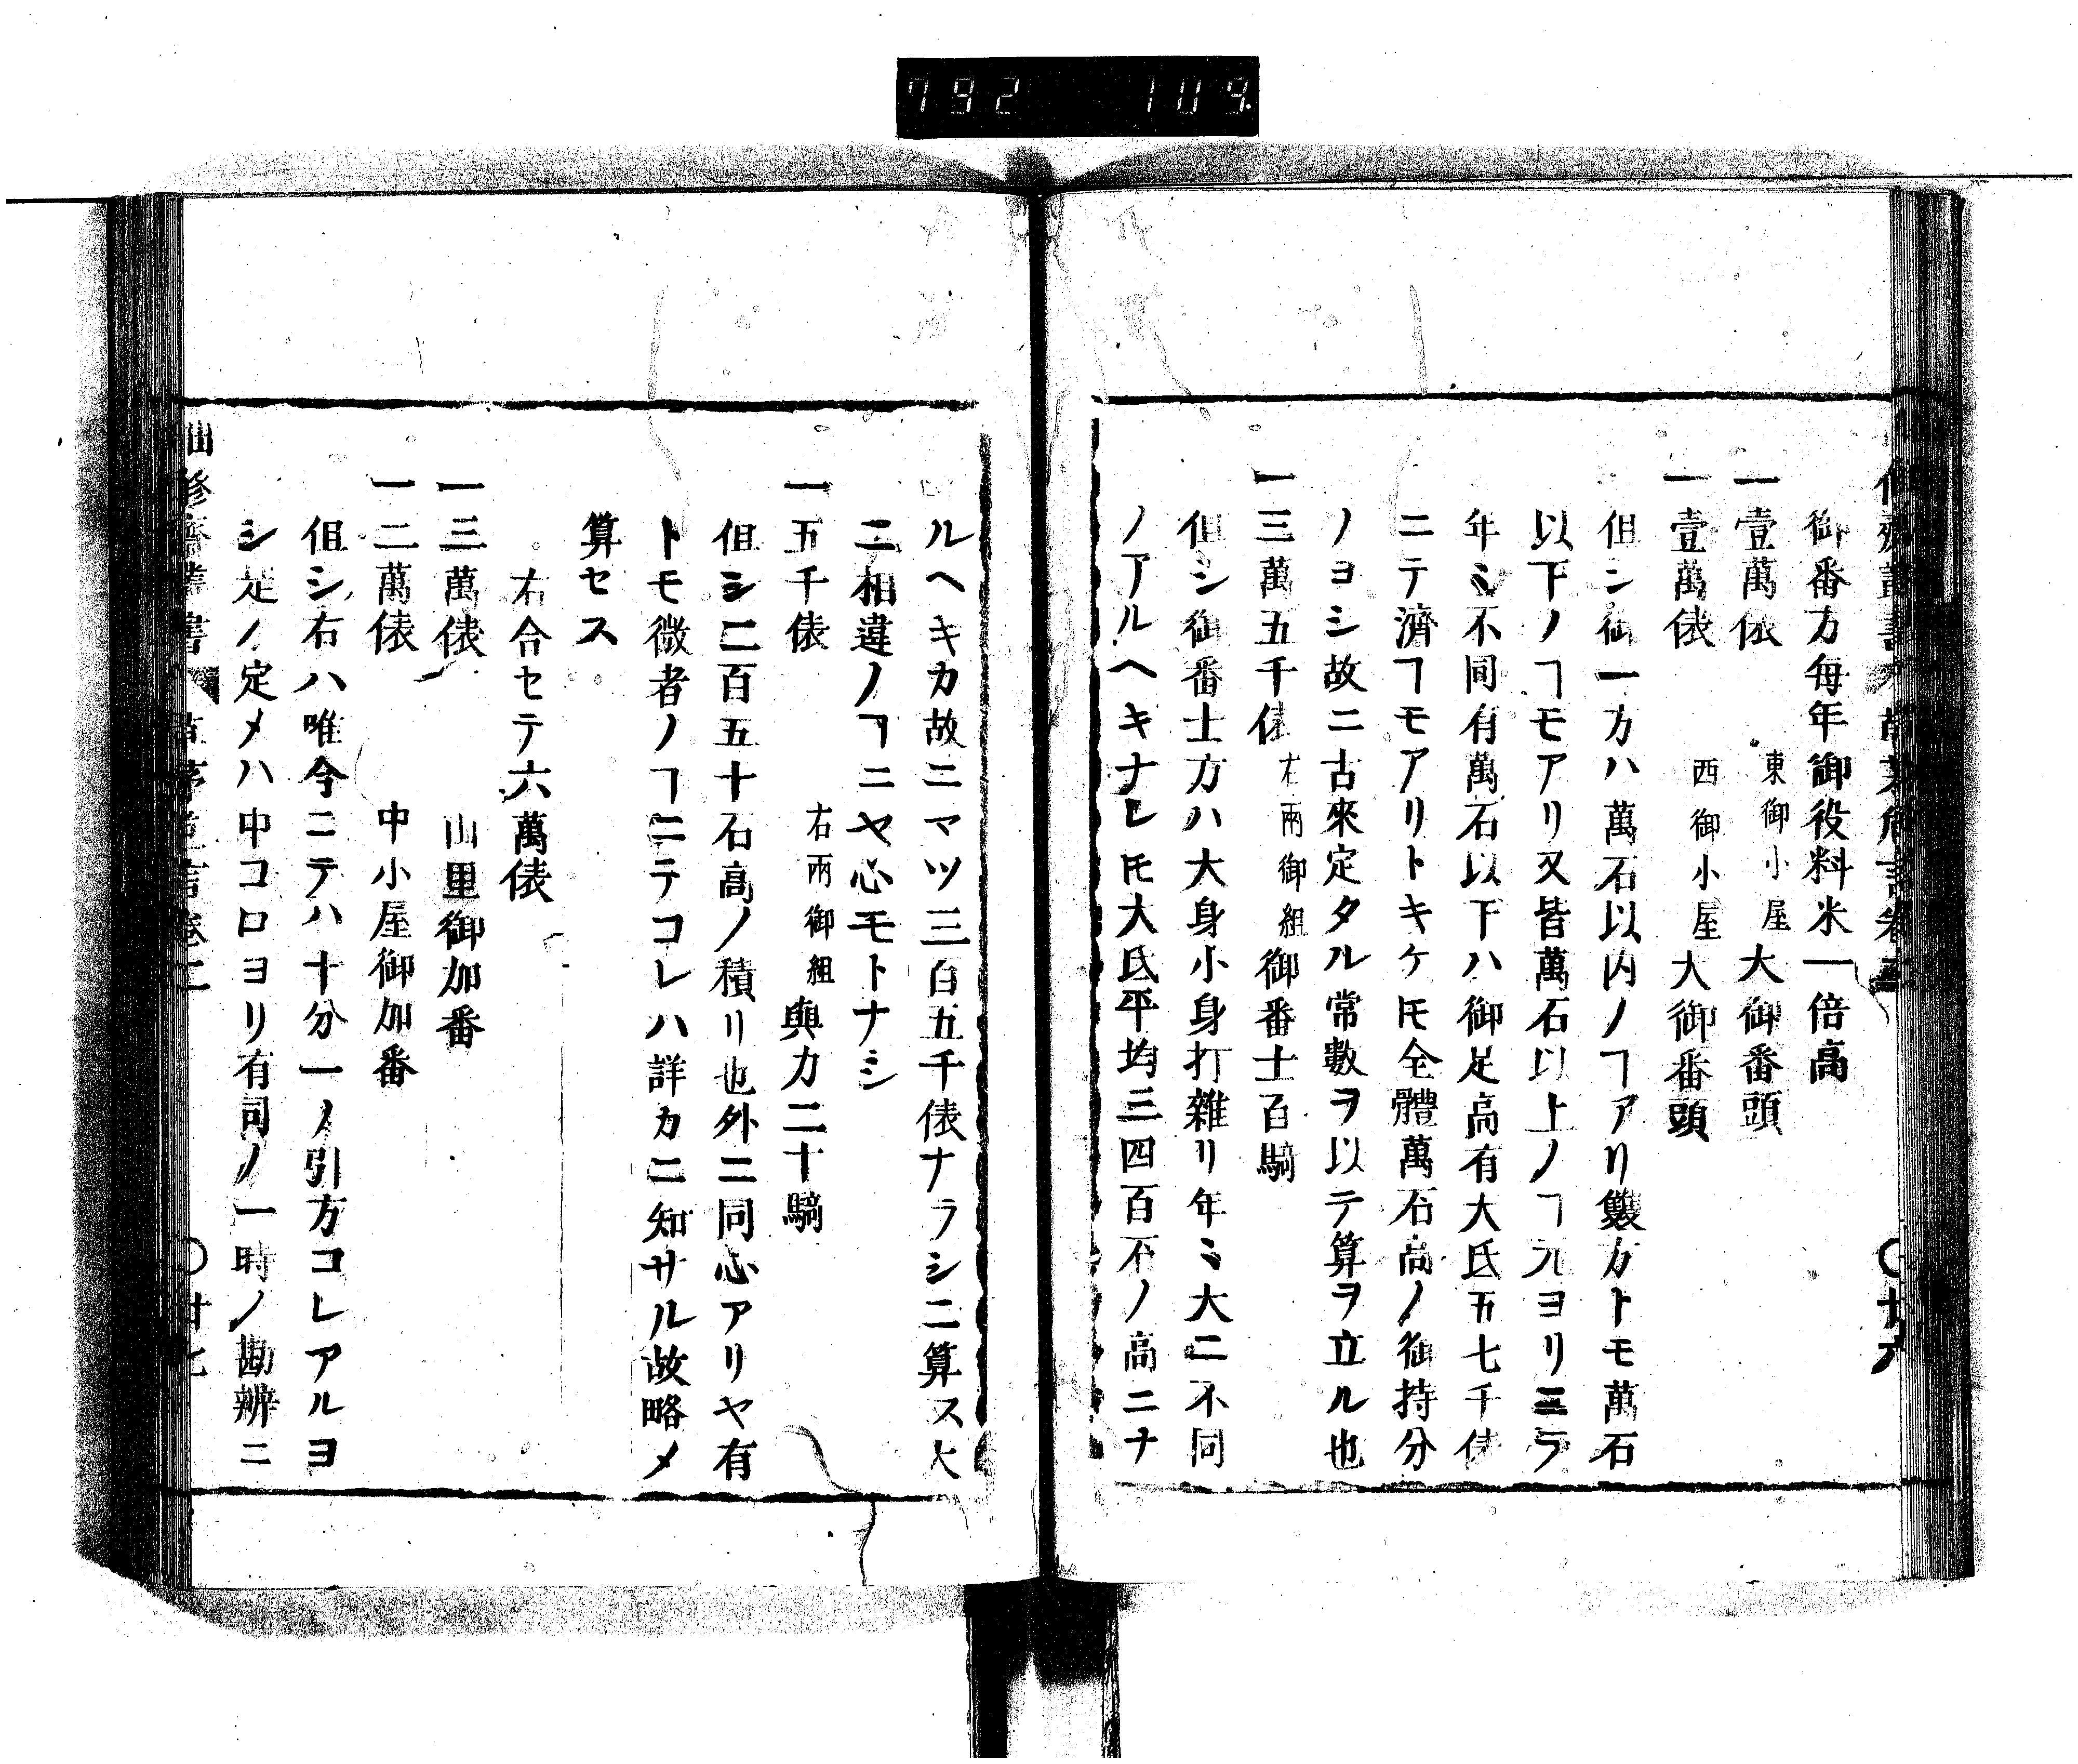 792 109
御番方毎年御役料米一倍高
一壹萬俵 東御小屋 大御番頭
一壹萬俵 西御小屋 大御番頭
但シ御一方ハ萬石以内ノヿアリ雙方トモ萬石
以下ノヿモアリ又皆萬石以上ノヿ元ヨリニテ
年ミ不同有萬石以下ハ御足高有大氐五七千俵
ニテ濟ヿモアリトキケ𪜈全體萬石高ノ御持分
ノヨシ故ニ古來定タル常數ヲ以テ算ヲ立ル也
一三萬五千俵 右兩御組 御番士百騎
但シ御番士方ハ大身小身打雜リ年ミ大ニ不同
ノアルヘキナレ𪜈大氐平均三四百石ノ高ニナ
ルヘキカ故ニマツ三百五千俵ナラシニ算ス大
ニ相違ノヿニヤ心モトナシ
一五千俵 右兩御組 與力二十騎
但シ二百五十石高ノ積リ也外ニ同心アリヤ有
トモ微者ノヿニテコレハ詳カニ知サル故略メ
算セス
右合セテ六萬俵
一三萬俵 山里御加番
一二萬俵 中小屋御加番
但シ右ハ唯今ニテハ十分一ノ引方コレアルヨ
シ是ノ定メハ中コロヨリ有司ノ一時ノ勘辨ニ